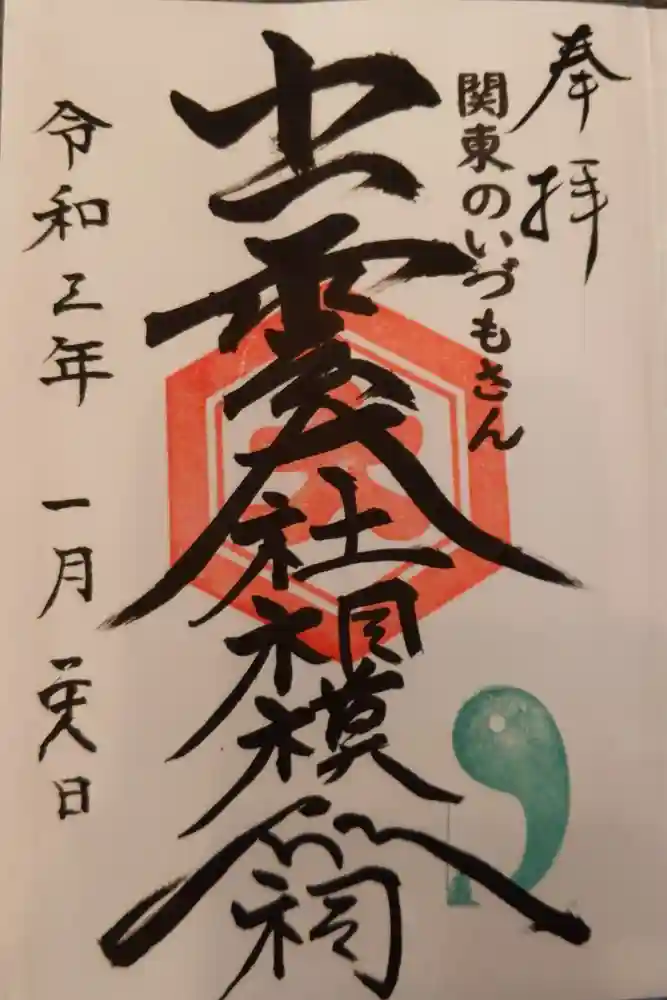 奉拝
関東のいづもさん
出雲大社相模分祠
令和三年 一月 日